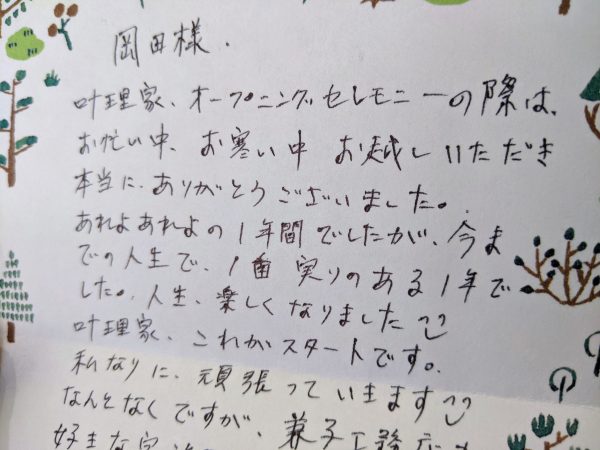 岡田様.
叶理家、オープニングセレモニーの際は、
お忙い中、お寒い中 お越しいただき
本当に、ありがとうございました。
あれよあれよの1年間でしたが、今ま
での人生で、1番 実りのある1年で
した。人生、楽しくなりました
叶理家、これがスタートです。
私なりに、頑張っていきます
なんとなくですが、兼子工務店
好きな家